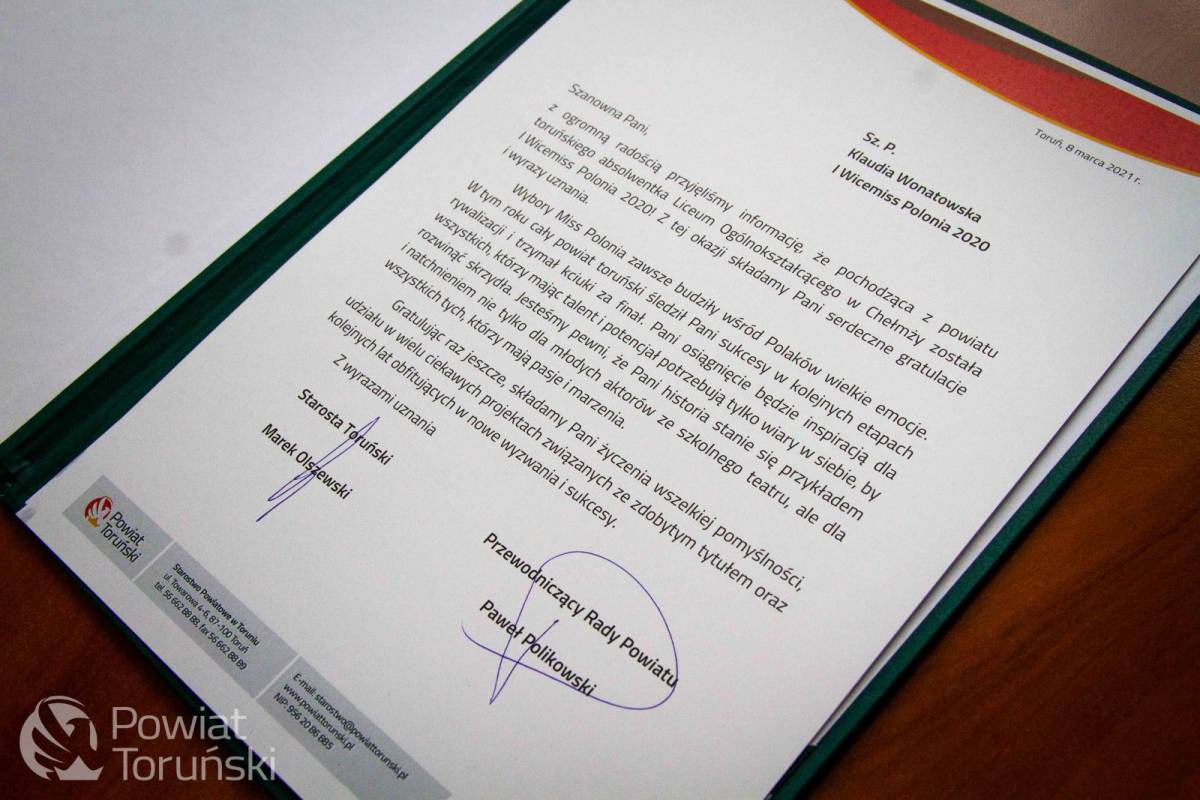 Toruń, 8 marca 2021 r.
Sz. P.
Klaudia Wonatowska
I Wicemiss Polonia 2020
Szanowna Pani,
z ogromną radością przyjęliśmy informację, że pochodząca z powiatu
toruńskiego absolwentka Liceum Ogólnokształcącego w Chełmży została
I Wicemiss Polonia 2020! Z tej okazji składamy Pani serdeczne gratulacje
i wyrazy uznania.
Wybory Miss Polonia zawsze budziły wśród Polaków wielkie emocje.
W tym roku cały powiat toruński śledził Pani sukcesy w kolejnych etapach
rywalizacji i trzymał kciuki za finał. Pani osiągnięcie będzie inspiracją dla
wszystkich, którzy mając talent i potencjał potrzebują tylko wiary w siebie, by
rozwinąć skrzydła. Jesteśmy pewni, że Pani historia stanie się przykładem
i natchnieniem nie tylko dla młodych aktorów ze szkolnego teatru, ale dla
wszystkich tych, którzy mają pasje i marzenia.
Gratulując raz jeszcze, składamy Pani życzenia wszelkiej pomyślności,
udziału w wielu ciekawych projektach związanych ze zdobytym tytułem oraz
kolejnych lat obfitujących w nowe wyzwania i sukcesy.
Z wyrazami uznania
Starosta Toruński
Marek Olszewski
Przewodniczący Rady Powiatu
Paweł Polikowski
Powiat
Toruński
Starostwo Powiatowe w Toruniu
ul. Towarowa 4-6, 87-100 Toruń
tel. 56 662 88 88, fax 56 662 88 89
E-mail: starostwo@powiattorunski.pl
www.powiattorunski.pl
NIP: 956 20 86 885
Powiat
Toruński